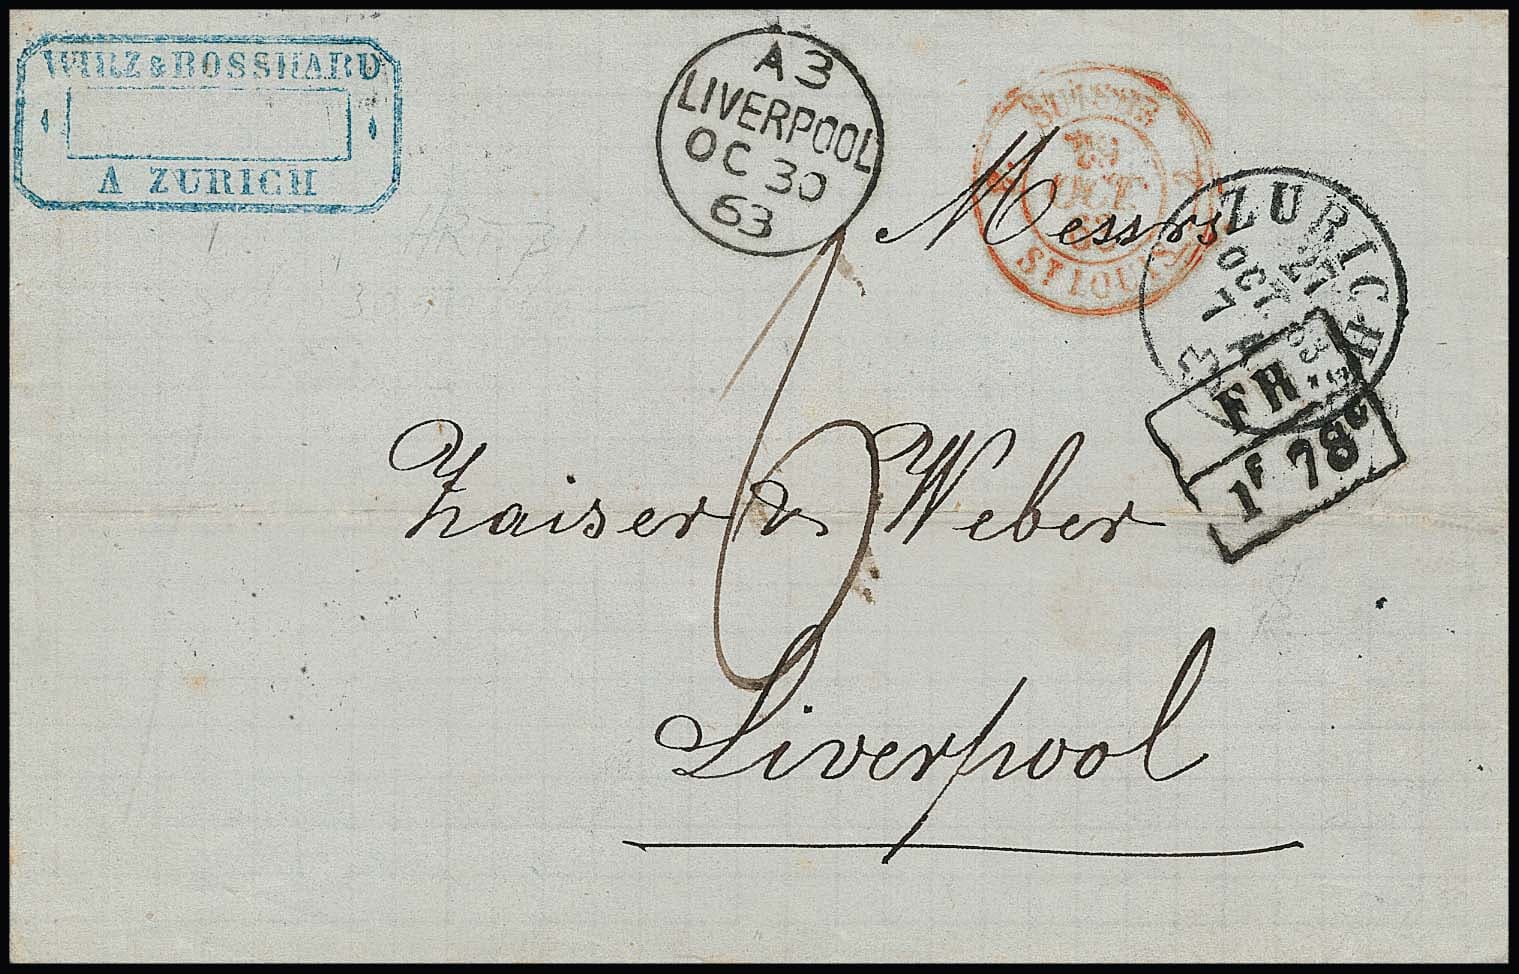 WIRZ & BOSSHARD
A ZURICH
A3
LIVERPOOL
OC 30
63
SUISSE
29
OCT.
63
ST LOUIS
ZURICH
27
OCT 63
7
FR.
1F 78C
Messrs
Kaiser & Weber
Liverpool
6